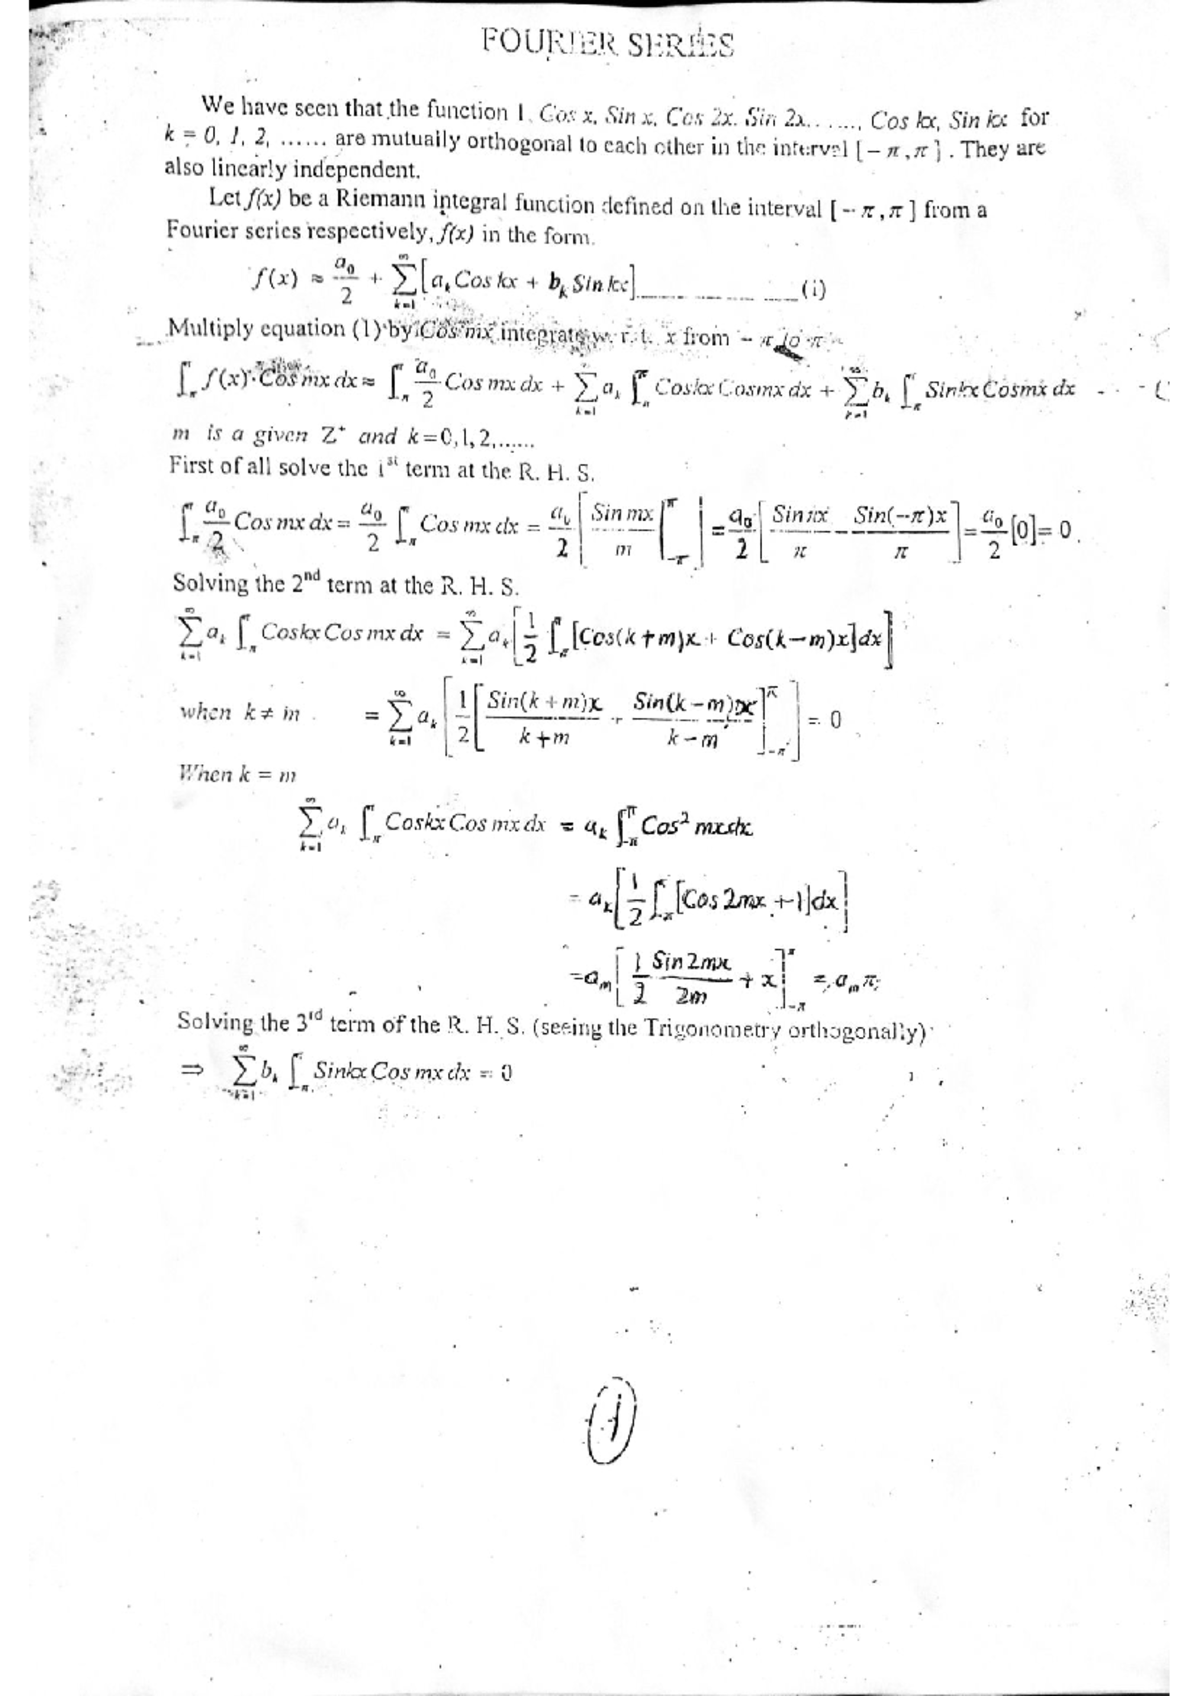 FOURIER SERIES
We have seen that the function 1, Cos x, Sin x, Cos 2x, Sin 2x, ......, Cos kx, Sin kx for
k = 0, 1, 2, ...... are mutually orthogonal to each other in the interval [−π, π]. They are
also linearly independent.
Let f(x) be a Riemann integral function defined on the interval [−π, π] from a
Fourier series respectively, f(x) in the form.
f(x) ≈ a₀/2 + ∑_{k=1}^{∞} [a_k Cos kx + b_k Sin kx] ____________ (i)
Multiply equation (1) by Cos mx integrate w. r. t. x from −π to π
∫_{-π}^{π} f(x) Cos mx dx ≈ ∫_{-π}^{π} a₀/2 Cos mx dx + ∑_{k=1}^{∞} a_k ∫_{-π}^{π} Cos kx Cos mx dx + ∑_{k=1}^{∞} b_k ∫_{-π}^{π} Sin kx Cos mx dx - - - (
m is a given Z⁺ and k=0,1,2,......
First of all solve the 1st term at the R. H. S.
∫_{-π}^{π} a₀/2 Cos mx dx = a₀/2 ∫_{-π}^{π} Cos mx dx = a₀/2 [Sin mx/m |_{-π}^{π}] = a₀/2 [Sin πx/π − Sin(−π)x/π] = a₀/2 [0] = 0.
Solving the 2nd term at the R. H. S.
∑_{k=1}^{∞} a_k ∫_{-π}^{π} Cos kx Cos mx dx = ∑_{k=1}^{∞} a_k [1/2 ∫_{-π}^{π} [Cos(k+m)x + Cos(k−m)x]dx]
when k ≠ m = ∑_{k=1}^{∞} a_k [1/2 [Sin(k+m)x/k+m + Sin(k−m)x/k−m]_{-π}^{π}] = 0
When k = m
∑_{k=1}^{∞} a_k ∫_{-π}^{π} Cos kx Cos mx dx = a_k ∫_{-π}^{π} Cos² mx dx
= a_k [1/2 ∫_{-π}^{π} [Cos 2mx + 1]dx]
= a_m [1/2 Sin 2mx/2m + x]_{-π}^{π} = a_m π;
Solving the 3rd term of the R. H. S. (seeing the Trigonometry orthogonally)
⇒ ∑_{k=1}^{∞} b_k ∫_{-π}^{π} Sin kx Cos mx dx = 0
1